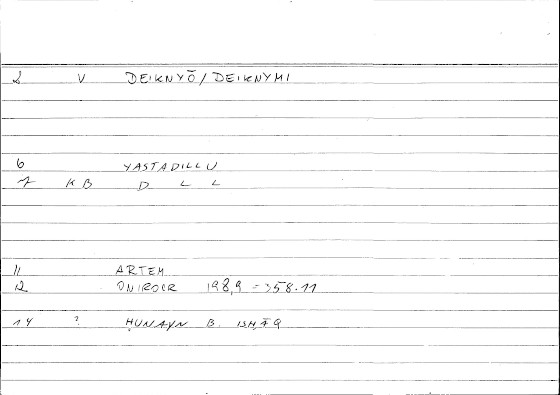 2 V DEIKNYŌ/DEIKNYMI
6 YASTADILLU
7 KB D L L
11 ARTEM
12 ONIROCR 198,9 = 358.11
14 ? ḤUNAYN B. ISḤĀQ